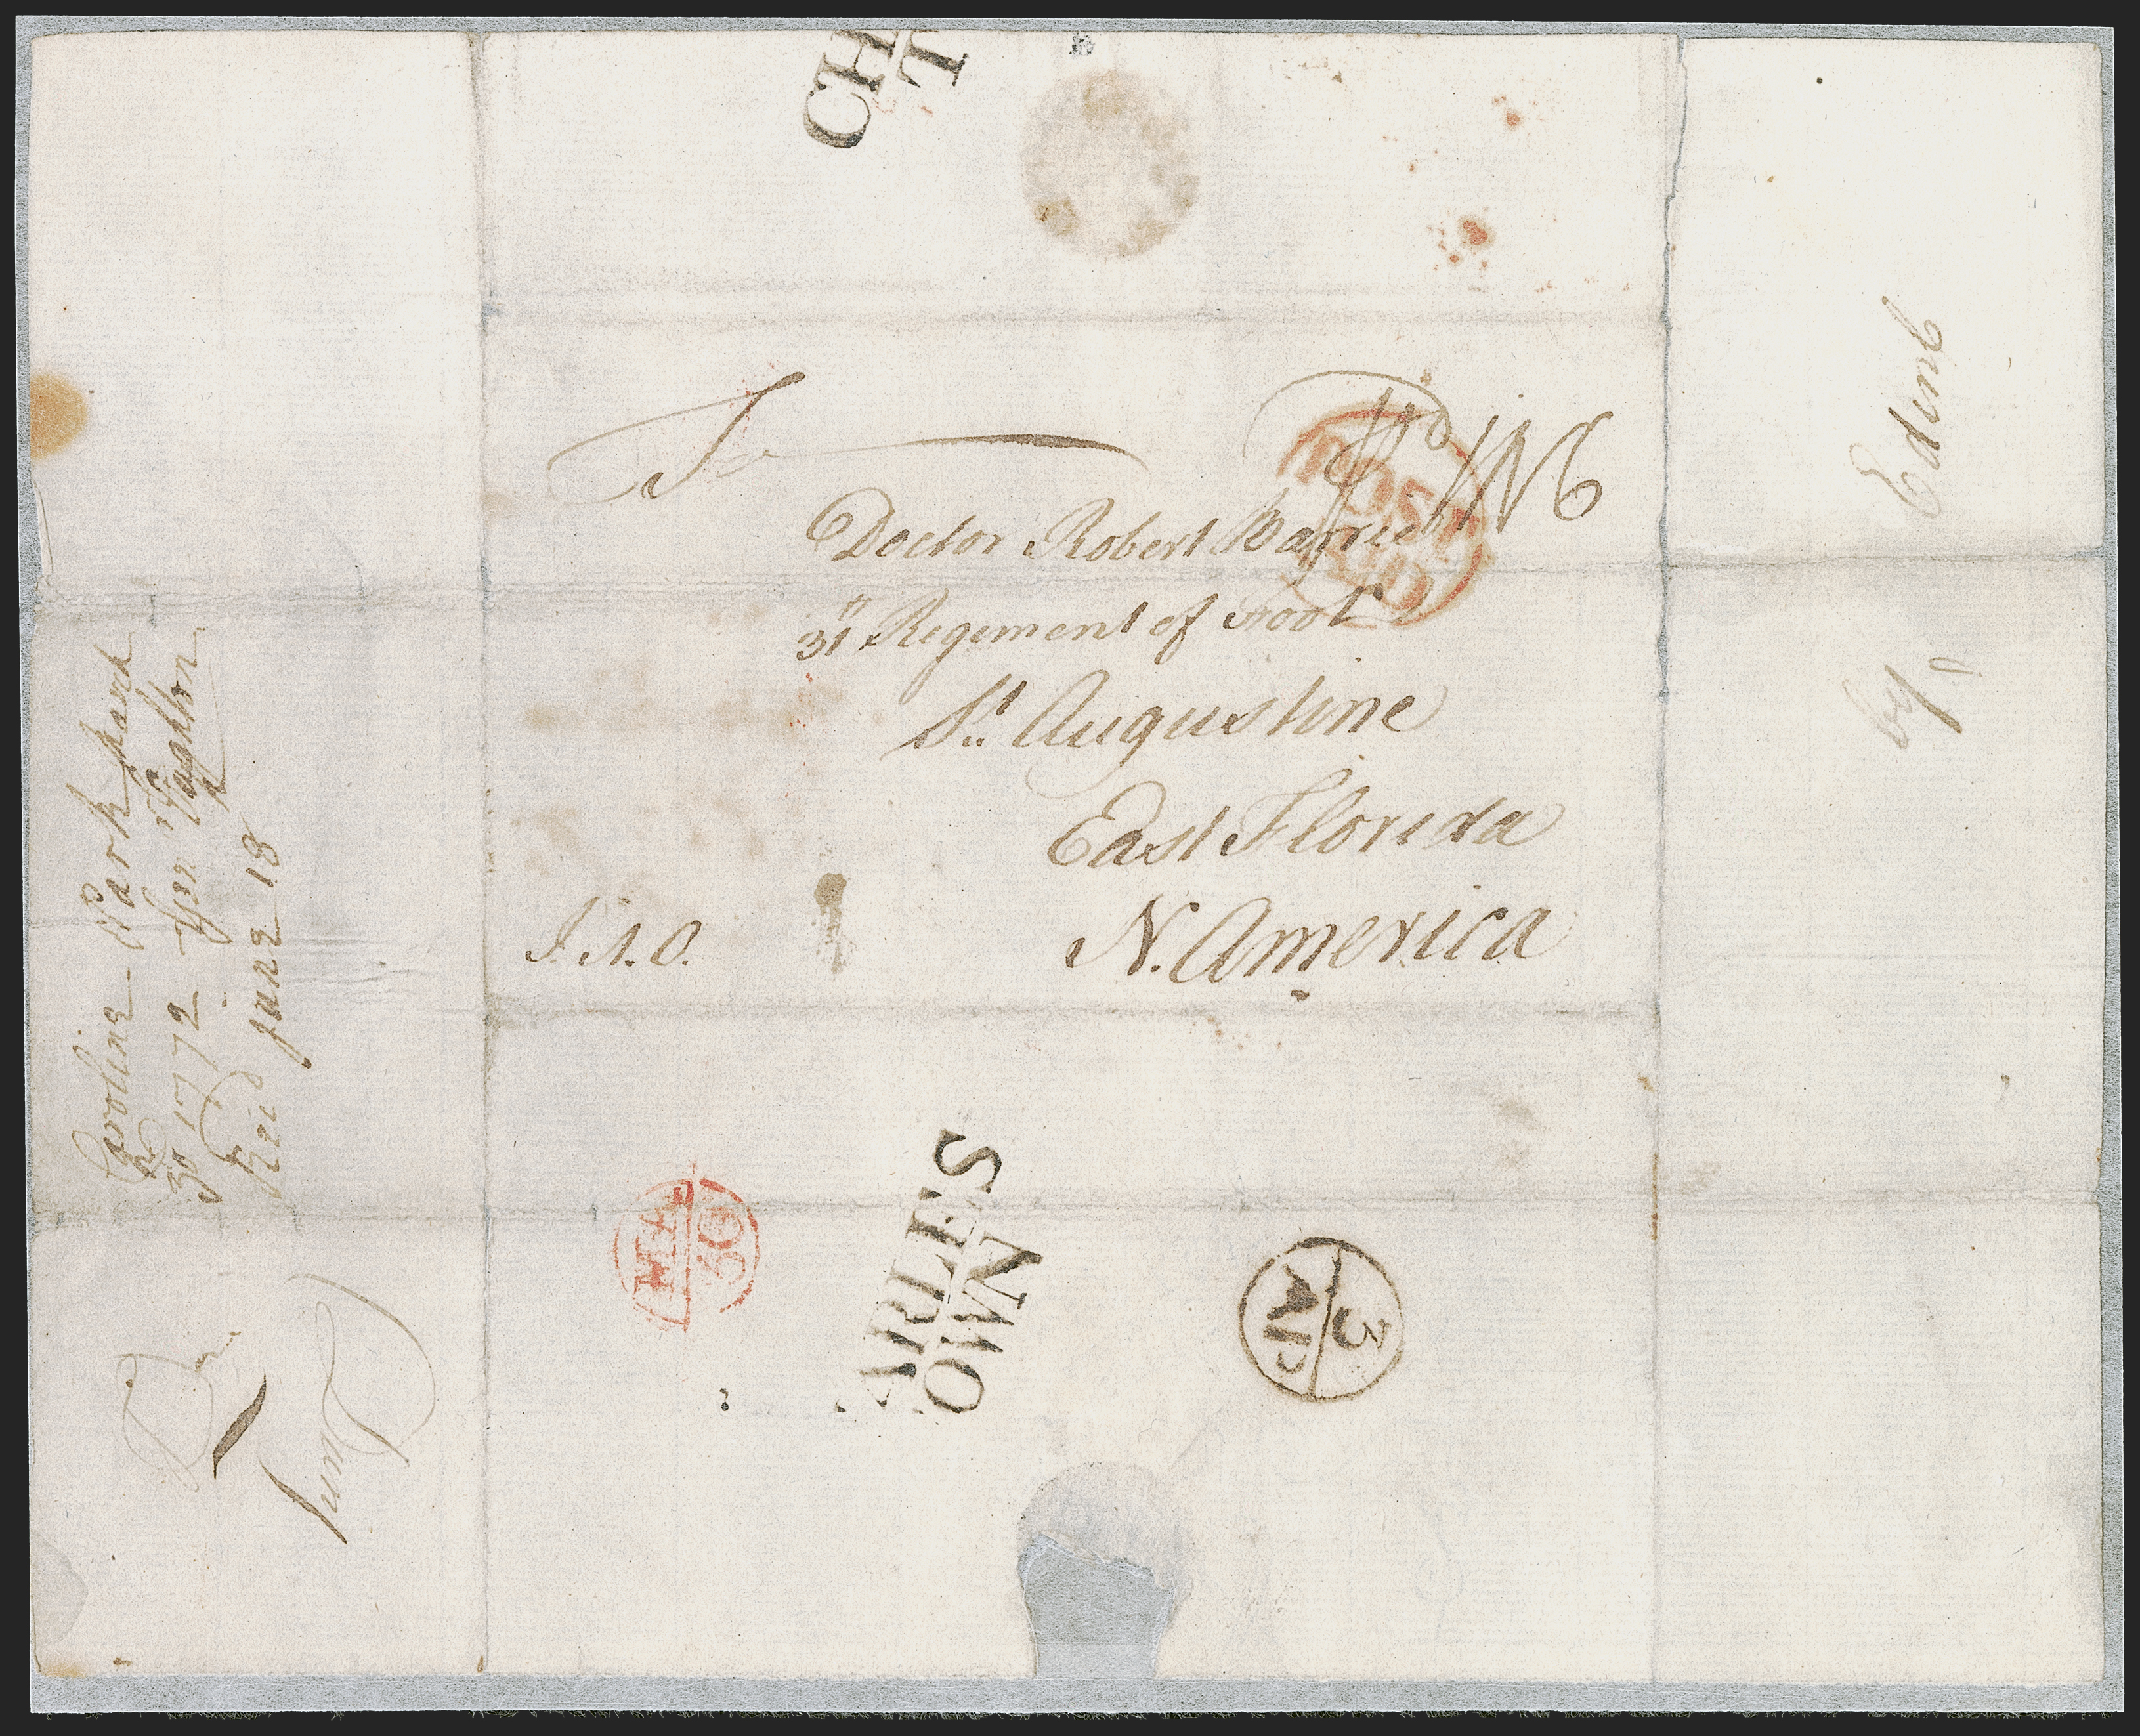 CH
T
To
Doctor Robert Barrie
31st Regiment of Foot
St. Augustine
East Florida
N. America
POST
PAID
Edinb
by
Caroline Park
30 1772
Recd June 13
MA
30
ARLES
OWN
3
AP